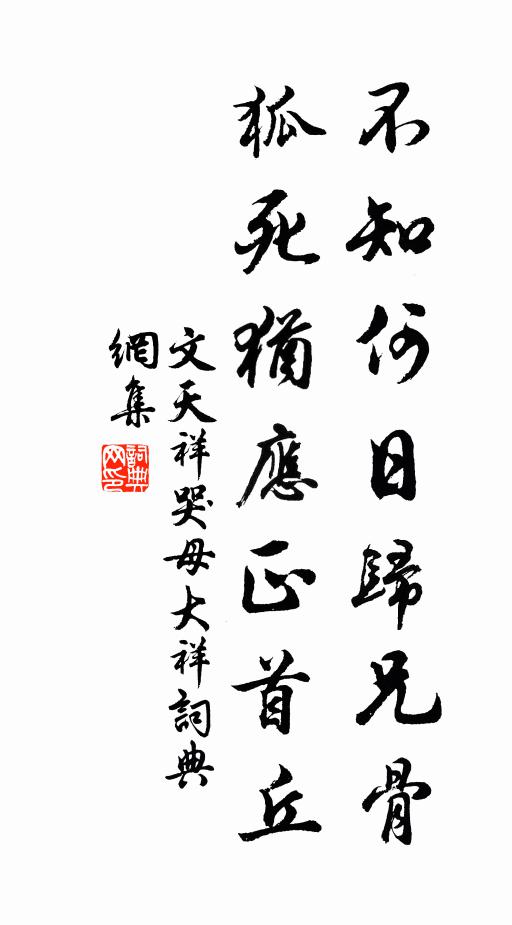 不知何日歸兄骨
狐死猶應正首丘
文天祥哭母大祥詞典
網集
詞典网印